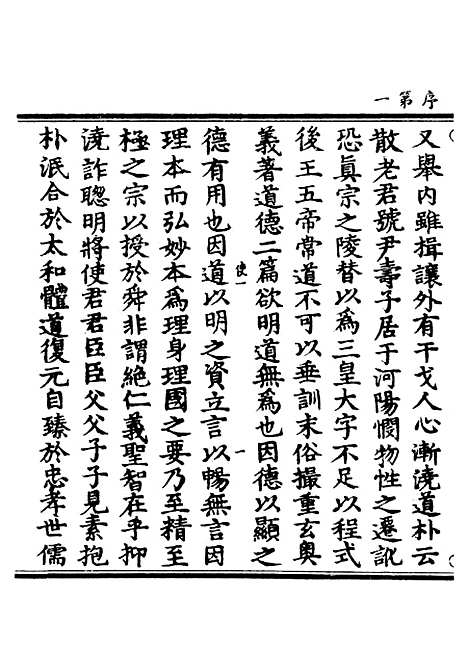 序第一
又舉內雖揖讓外有干戈人心漸澆道朴云
散老君號尹壽子居于河陽憫物性之遷訛
恐眞宗之陵替以爲三皇大字不足以程式
後王五帝常道不可以垂訓末俗撮重玄奥
義著道德二篇欲明道無爲也因德以顯之
德有用也因道以明之資立言以暢無言因
使一
理本而弘妙本爲理身理國之要乃至精至
極之宗以授於舜非謂絕仁義聖智在乎抑
澆詐聦明將使君君臣臣父父子子見素抱
朴泯合於太和體道復元自臻於忠孝世儒